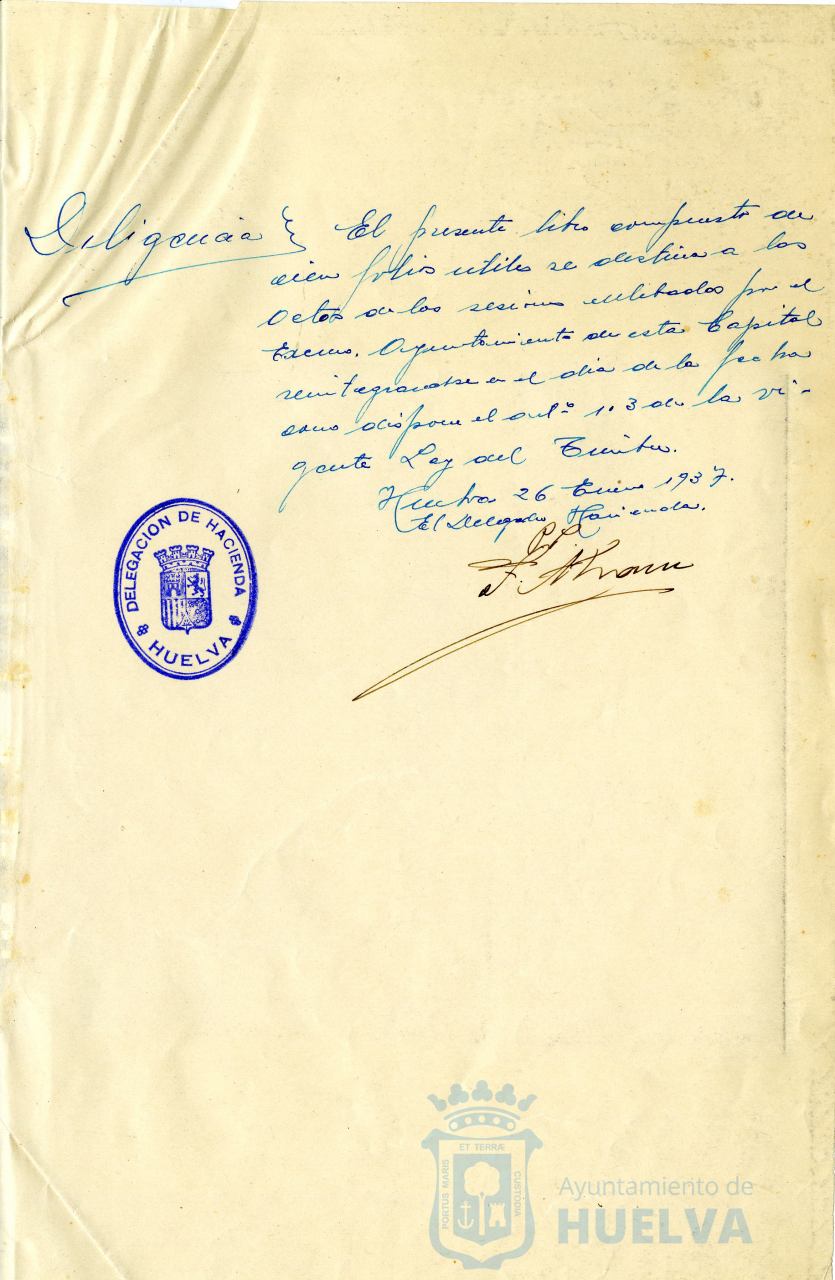 Diligencia } El presente libro compuesto de
cien folios utiles se destina a las
Actas de las sesiones celebradas por el
Excmo. Ayuntamiento de esta Capital
reintegrandose en el dia de la fecha
como dispone el artº 103 de la vi-
gente Ley del Timbre.
Huelva 26 Enero 1937.
El Delegado Hacienda.
F.
DELEGACION DE HACIENDA
HUELVA
ET TERRÆ
PORTUS MARIS
CUSTODIA
Ayuntamiento de
HUELVA